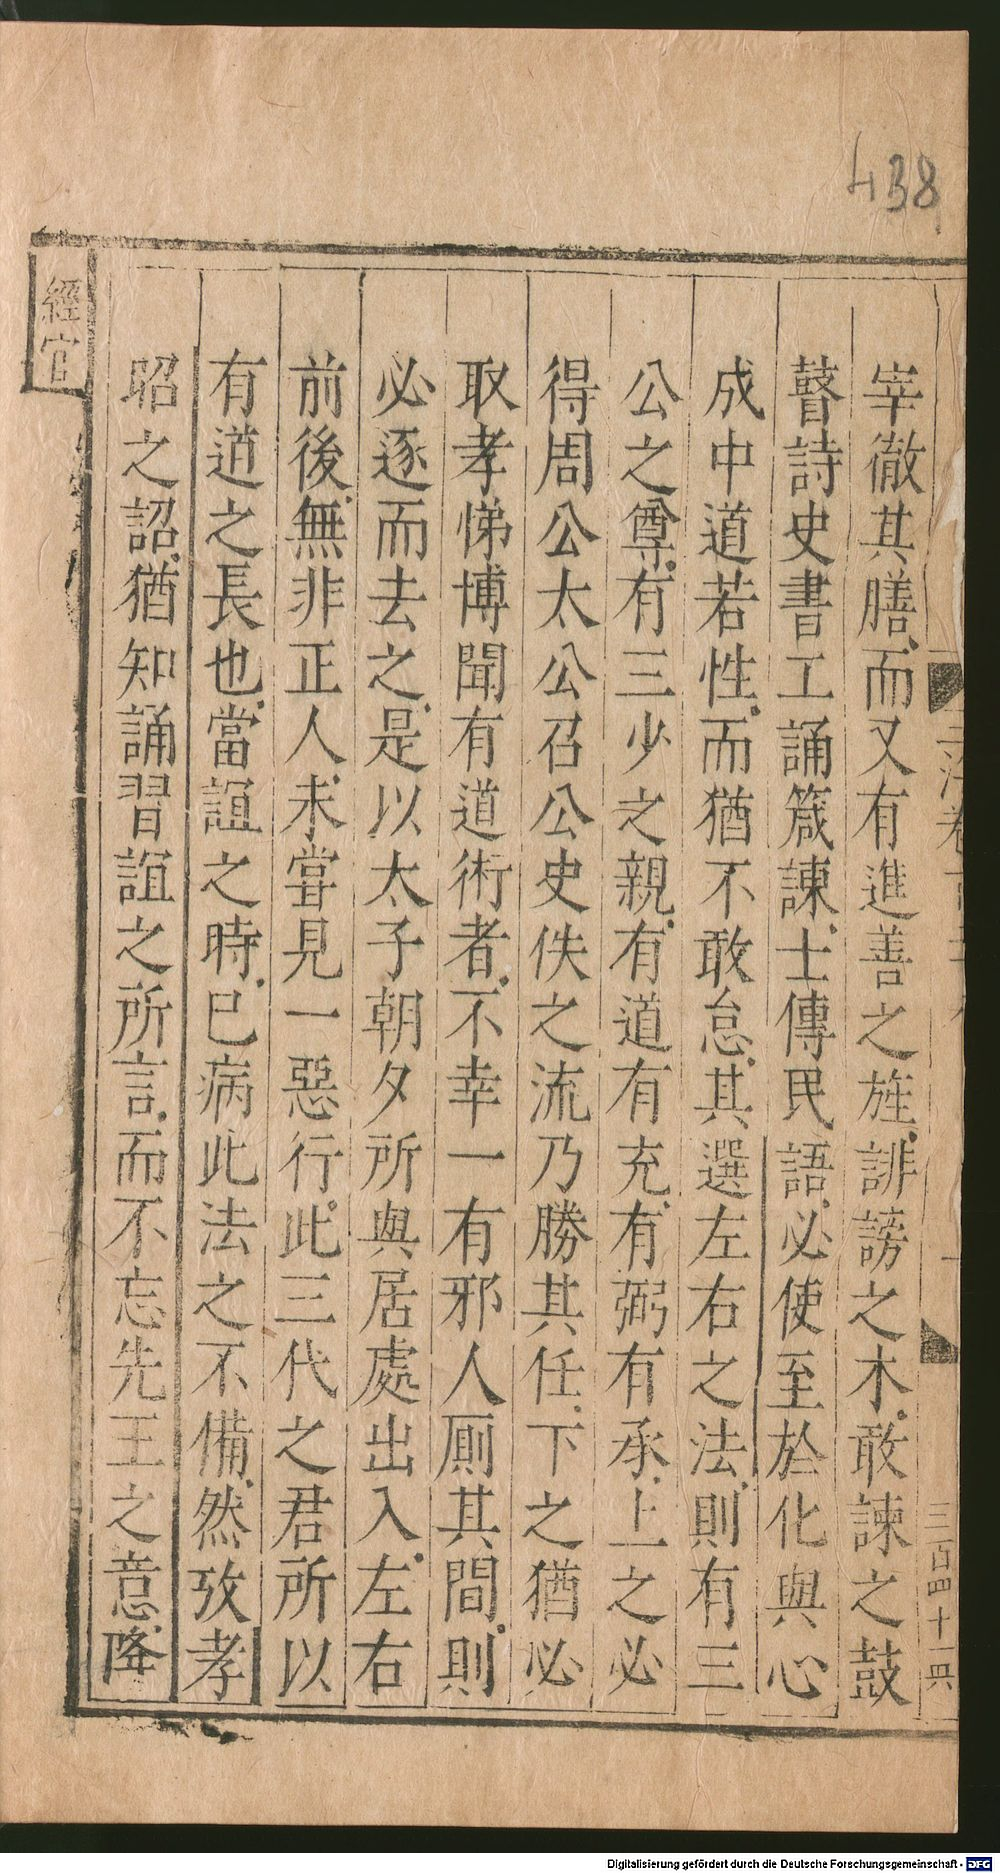 438
宰徹其膳、而又有進善之旌、誹謗之木、敢諫之鼓
瞽詩史書工誦箴諫、士傳民語、必使至於化與心
成中道若性、而猶不敢怠、其選左右之法、則有三
公之尊、有三少之親、有道有充、有弼有承、上之必
得周公太公召公史佚之流乃勝其任、下之猶必
取孝悌博聞有道術者、不幸一有邪人厠其間、則
必逐而去之、是以太子朝夕所與居處出入、左右
前後、無非正人、未嘗見一惡行、此三代之君所以
有道之長也、當誼之時、已病此法之不備、然攷孝
昭之詔、猶知誦習誼之所言、而不忘先王之意、降
經官
三百四十一
Digitalisierung gefördert durch die Deutsche Forschungsgemeinschaft - DFG